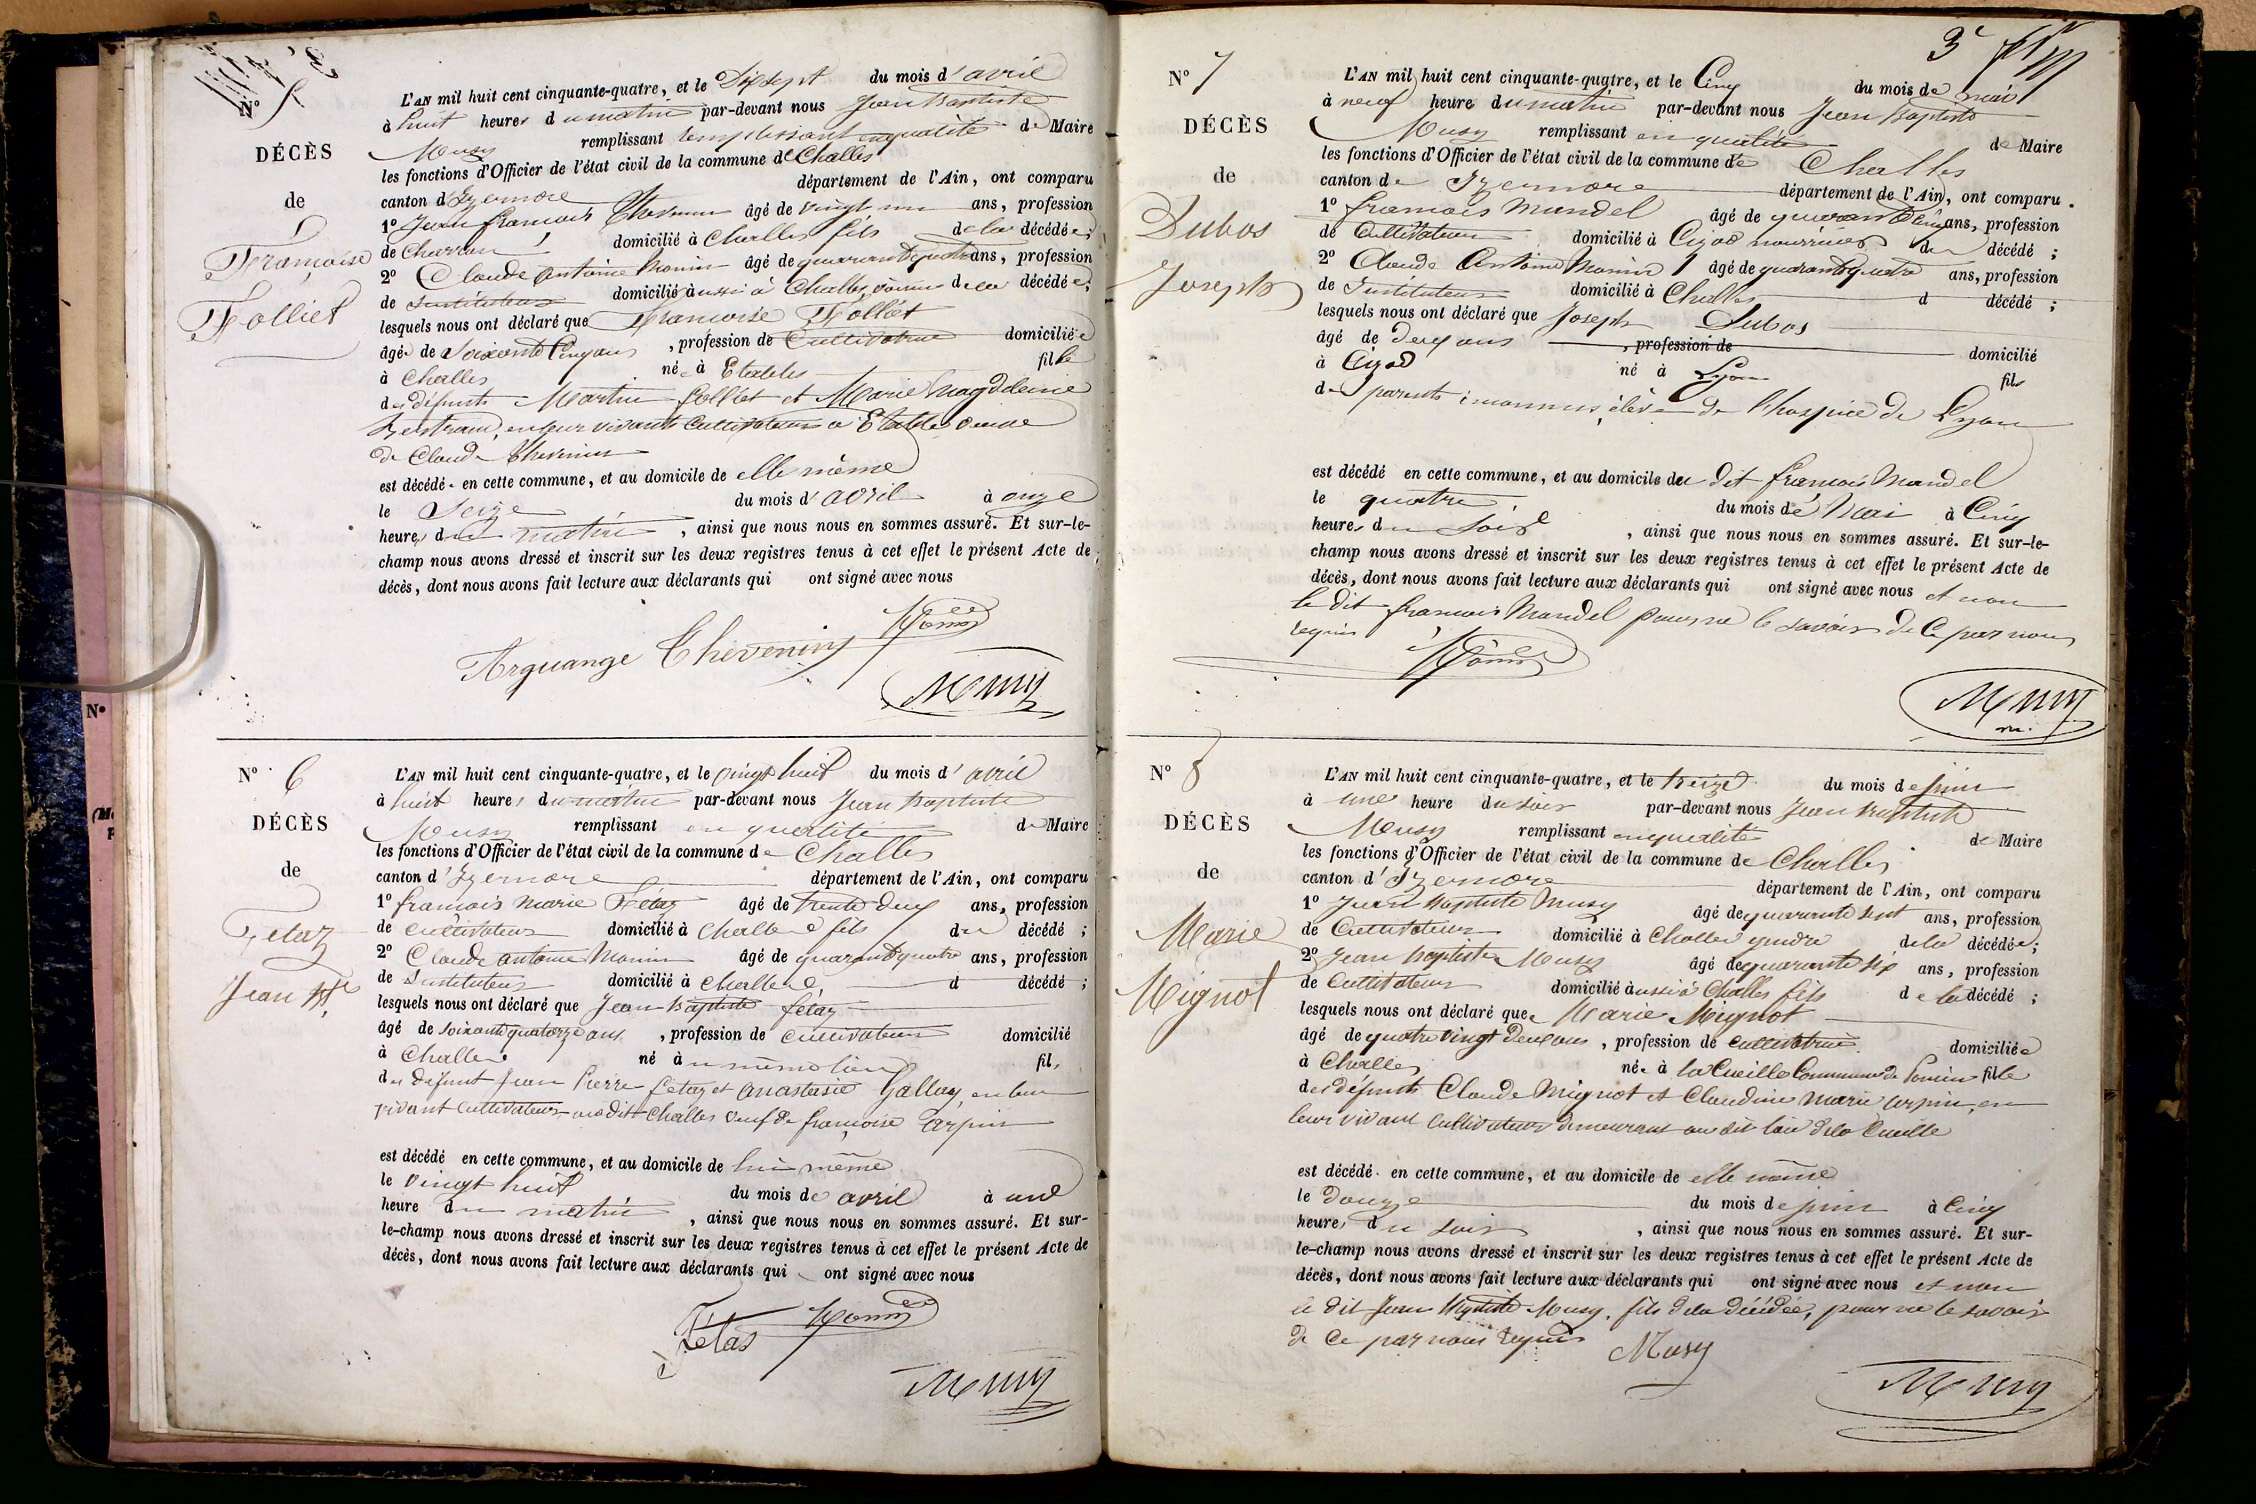 Nº 5
DÉCÈS
de
Françoise
Folliet
L'AN mil huit cent cinquante-quatre, et le Dix sept du mois d'avril
à huit heures du matin par-devant nous Jean Baptiste
Musy remplissant remplissant en qualité de Maire
les fonctions d'Officier de l'état civil de la commune de Challes
canton d'Izernore département de l'Ain, ont comparu
1º Jean françois Thevenin âgé de vingt un ans, profession
de charron domicilié à Challes fils de la décédée;
2º Claude Antoine Monin âgé de quarante quatre ans, profession
de Instituteur domicilié aussi à Challes, voisin de la décédée;
lesquels nous ont déclaré que Françoise Folliet
âgée de Soixante Cinq ans, profession de Cultivatrice domiciliée
à Challes née à Etables fille
des défunts Martin folliet et Marie Magdeleine
Bertrand, en leur vivant cultivateurs à Etables veuve
de Claude Thevenin
est décédée en cette commune, et au domicile de elle même
le Seize du mois d'avril à onze
heures du matin, ainsi que nous nous en sommes assuré. Et sur-le-
champ nous avons dressé et inscrit sur les deux registres tenus à cet effet le présent Acte de
décès, dont nous avons fait lecture aux déclarants qui ont signé avec nous
Arquange Thevenin Monin
Musy
Nº 6
DÉCÈS
de
Fétaz
Jean Bte
L'AN mil huit cent cinquante-quatre, et le vingt huit du mois d'avril
à huit heures du matin par-devant nous Jean Baptiste
Musy remplissant en qualité de Maire
les fonctions d'Officier de l'état civil de la commune de Challes
canton d'Izernore département de l'Ain, ont comparu
1º françois Marie Fétaz âgé de trente deux ans, profession
de cultivateur domicilié à Challes fils du décédé;
2º Claude antoine Monin âgé de quarante quatre ans, profession
de Instituteur domicilié à Challes d décédé;
lesquels nous ont déclaré que Jean Baptiste fétaz
âgé de soixante quatorze ans, profession de cultivateur domicilié
à Challes né à u même lieu fils
des défunt Jean Pierre fetaz et anastasie Gallay, en leur
vivant cultivateurs au dit Challes veuf de françoise arpin
est décédé en cette commune, et au domicile de lui même
le vingt huit du mois de avril à une
heure du matin, ainsi que nous nous en sommes assuré. Et sur-
le-champ nous avons dressé et inscrit sur les deux registres tenus à cet effet le présent Acte de
décès, dont nous avons fait lecture aux déclarants qui ont signé avec nous
Fétas Monin
Musy
3e
Nº 7
DÉCÈS
de
Dubos
Joseph
L'AN mil huit cent cinquante-quatre, et le Cinq du mois de mai
à neuf heure du matin par-devant nous Jean Baptiste
Musy remplissant en qualité de Maire
les fonctions d'Officier de l'état civil de la commune de Challes
canton de Izernore département de l'Ain, ont comparu
1º françois Mandel âgé de quarante cinq ans, profession
de Cultivateur domicilié à Cizod nourricier du décédé;
2º Claude Antoine Monin âgé de quarante quatre ans, profession
de Instituteur domicilié à Challes d décédé;
lesquels nous ont déclaré que Joseph Dubos
âgé de deux ans, profession de domicilié
à Cizod né à Lyon fils
de parents inconnus, élève de l'hospice de Lyon
est décédé en cette commune, et au domicile du dit françois Mandel
le quatre du mois de Mai à Cinq
heures du soir, ainsi que nous nous en sommes assuré. Et sur-le-
champ nous avons dressé et inscrit sur les deux registres tenus à cet effet le présent Acte de
décès, dont nous avons fait lecture aux déclarants qui ont signé avec nous et non
le dit françois Mandel pour ne le savoir de Ce par nous
requis
Monin
Musy
Nº 8
DÉCÈS
de
Marie
Mignot
L'AN mil huit cent cinquante-quatre, et le treize du mois de juin
à une heure du soir par-devant nous Jean Baptiste
Musy remplissant en qualité de Maire
les fonctions d'Officier de l'état civil de la commune de Challes
canton d'Izernore département de l'Ain, ont comparu
1º Jean Baptiste Musy âgé de quarante sept ans, profession
de Cultivateur domicilié à Challes gendre de la décédée;
2º Jean Baptiste Musy âgé de quarante six ans, profession
de Cultivateur domicilié aussi à Challes fils de la décédé;
lesquels nous ont déclaré que Marie Mignot
âgé de quatre vingt deux ans, profession de cultivatrice domiciliée
à Challes née à la Cueille Commune de Poncin fille
des défunts Claude Mignot et Claudine Marie arpin, en
leur vivant cultivateurs demeurant au dit lieu de la Cueille
est décédé en cette commune, et au domicile de elle même
le douze du mois de juin à cinq
heures du soir, ainsi que nous nous en sommes assuré. Et sur-
le-champ nous avons dressé et inscrit sur les deux registres tenus à cet effet le présent Acte de
décès, dont nous avons fait lecture aux déclarants qui ont signé avec nous et non
le dit Jean Baptiste Musy, fils de la décédée, pour ne le savoir
de Ce par nous requis
Musy
Musy